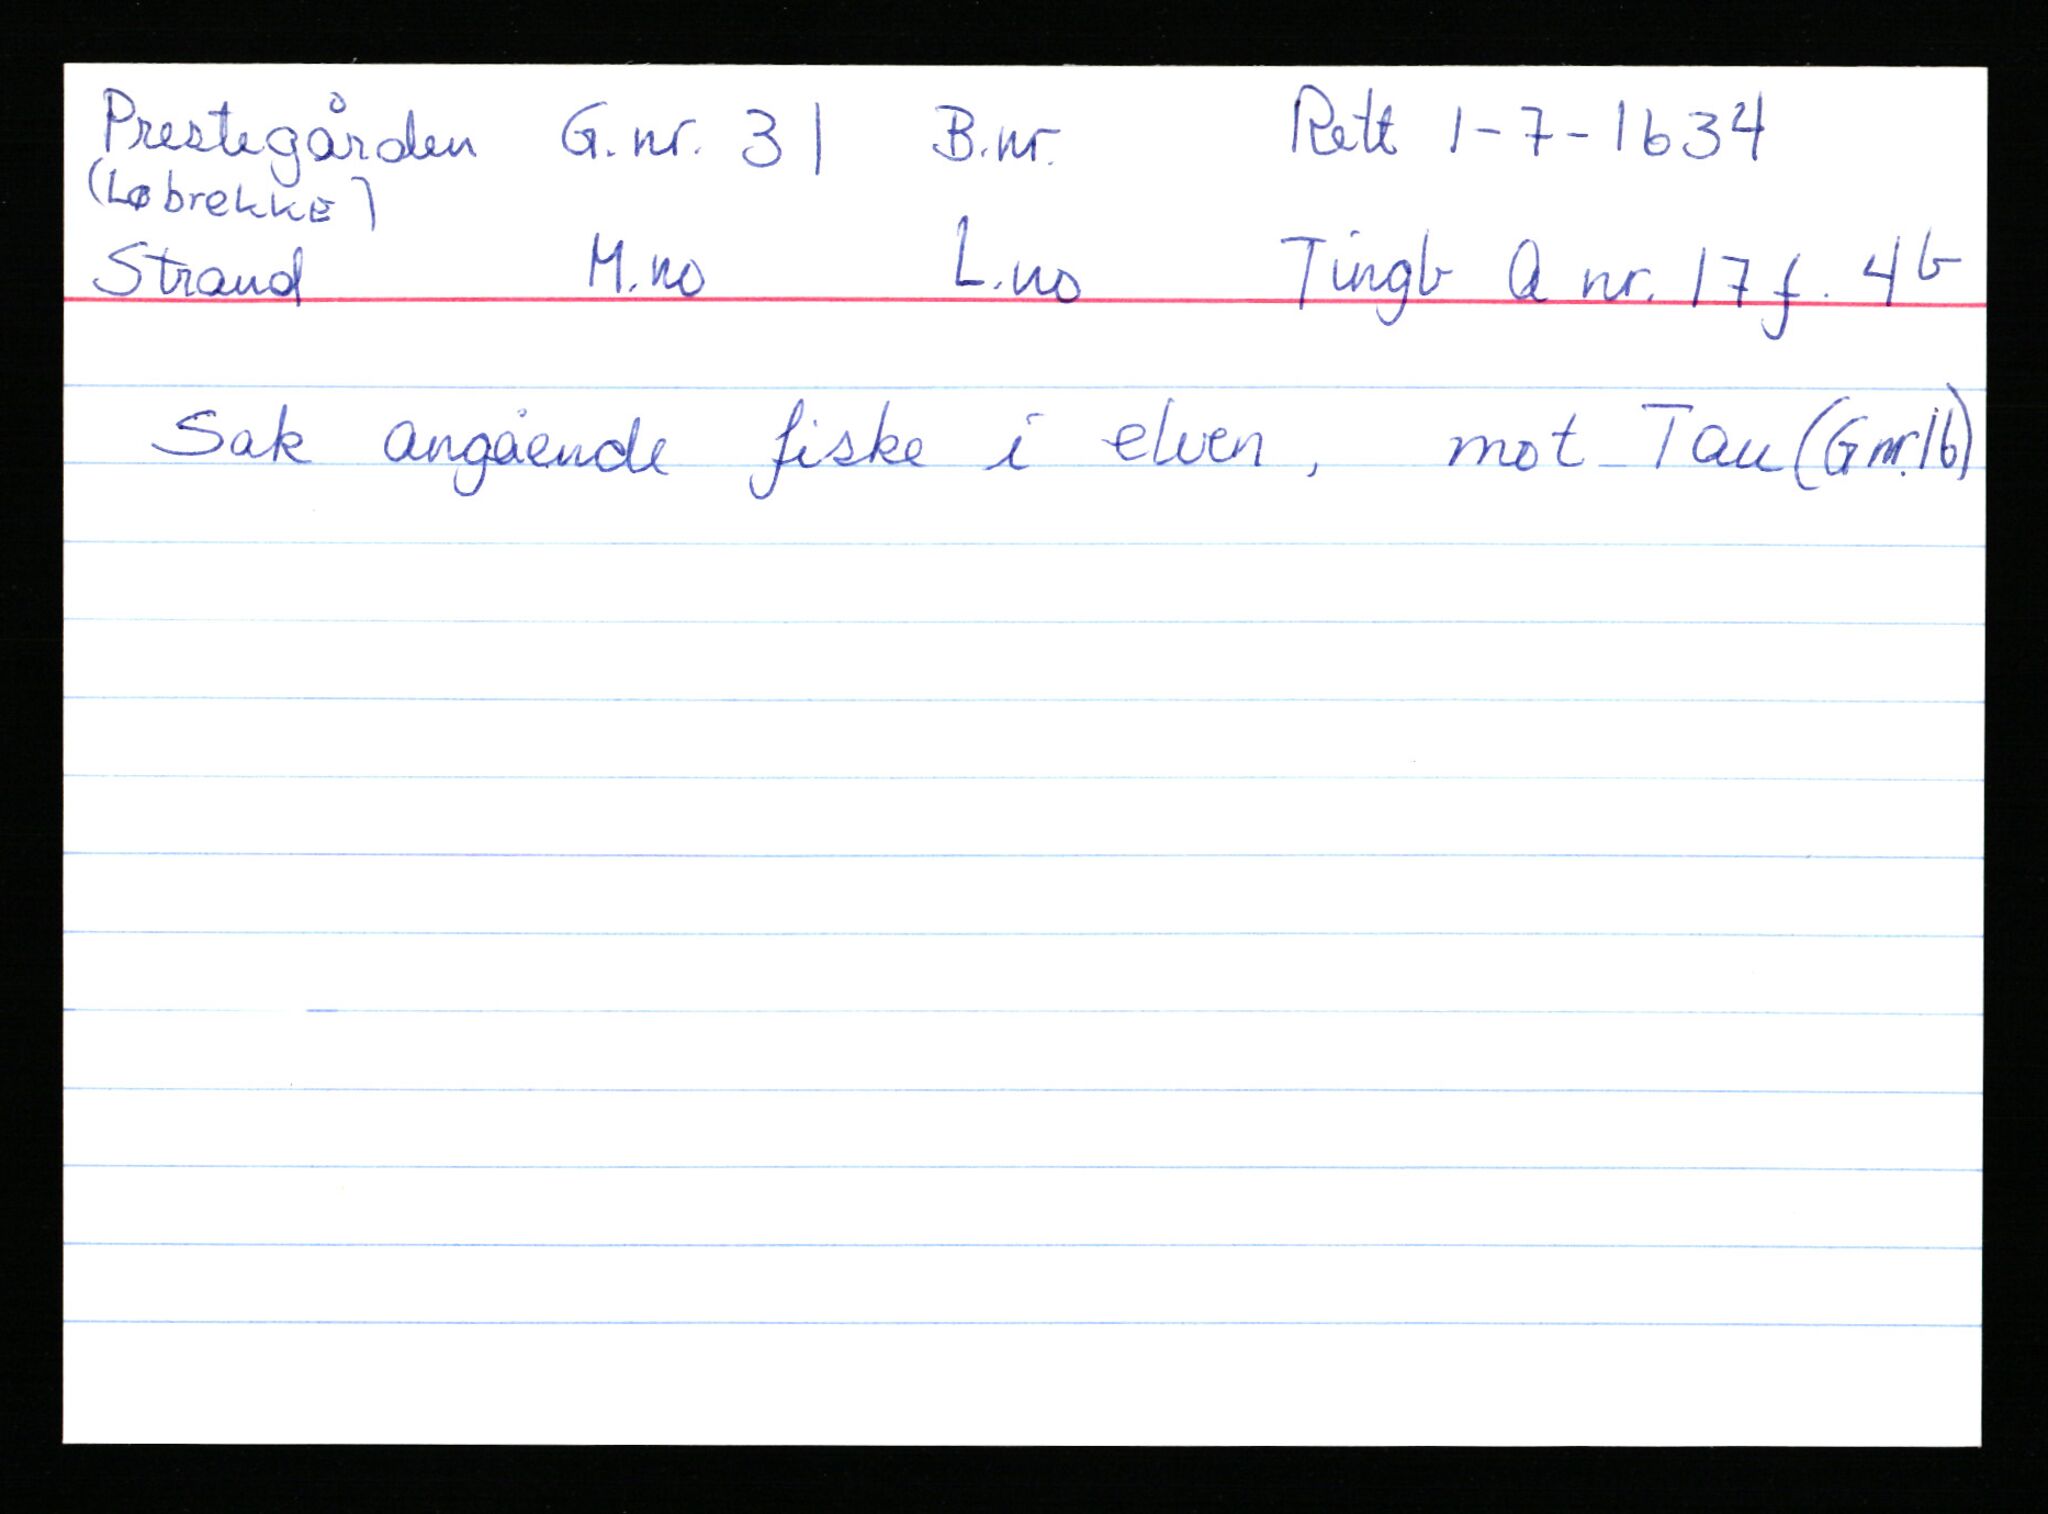 Prestegården G.nr. 31 B.nr. Rett 1-7-1634
(Løbrekke)
Strand M.no L.no Tingb A nr. 17 f. 4b
Sak angående fiske i elven, mot Tau (Gnr.16)